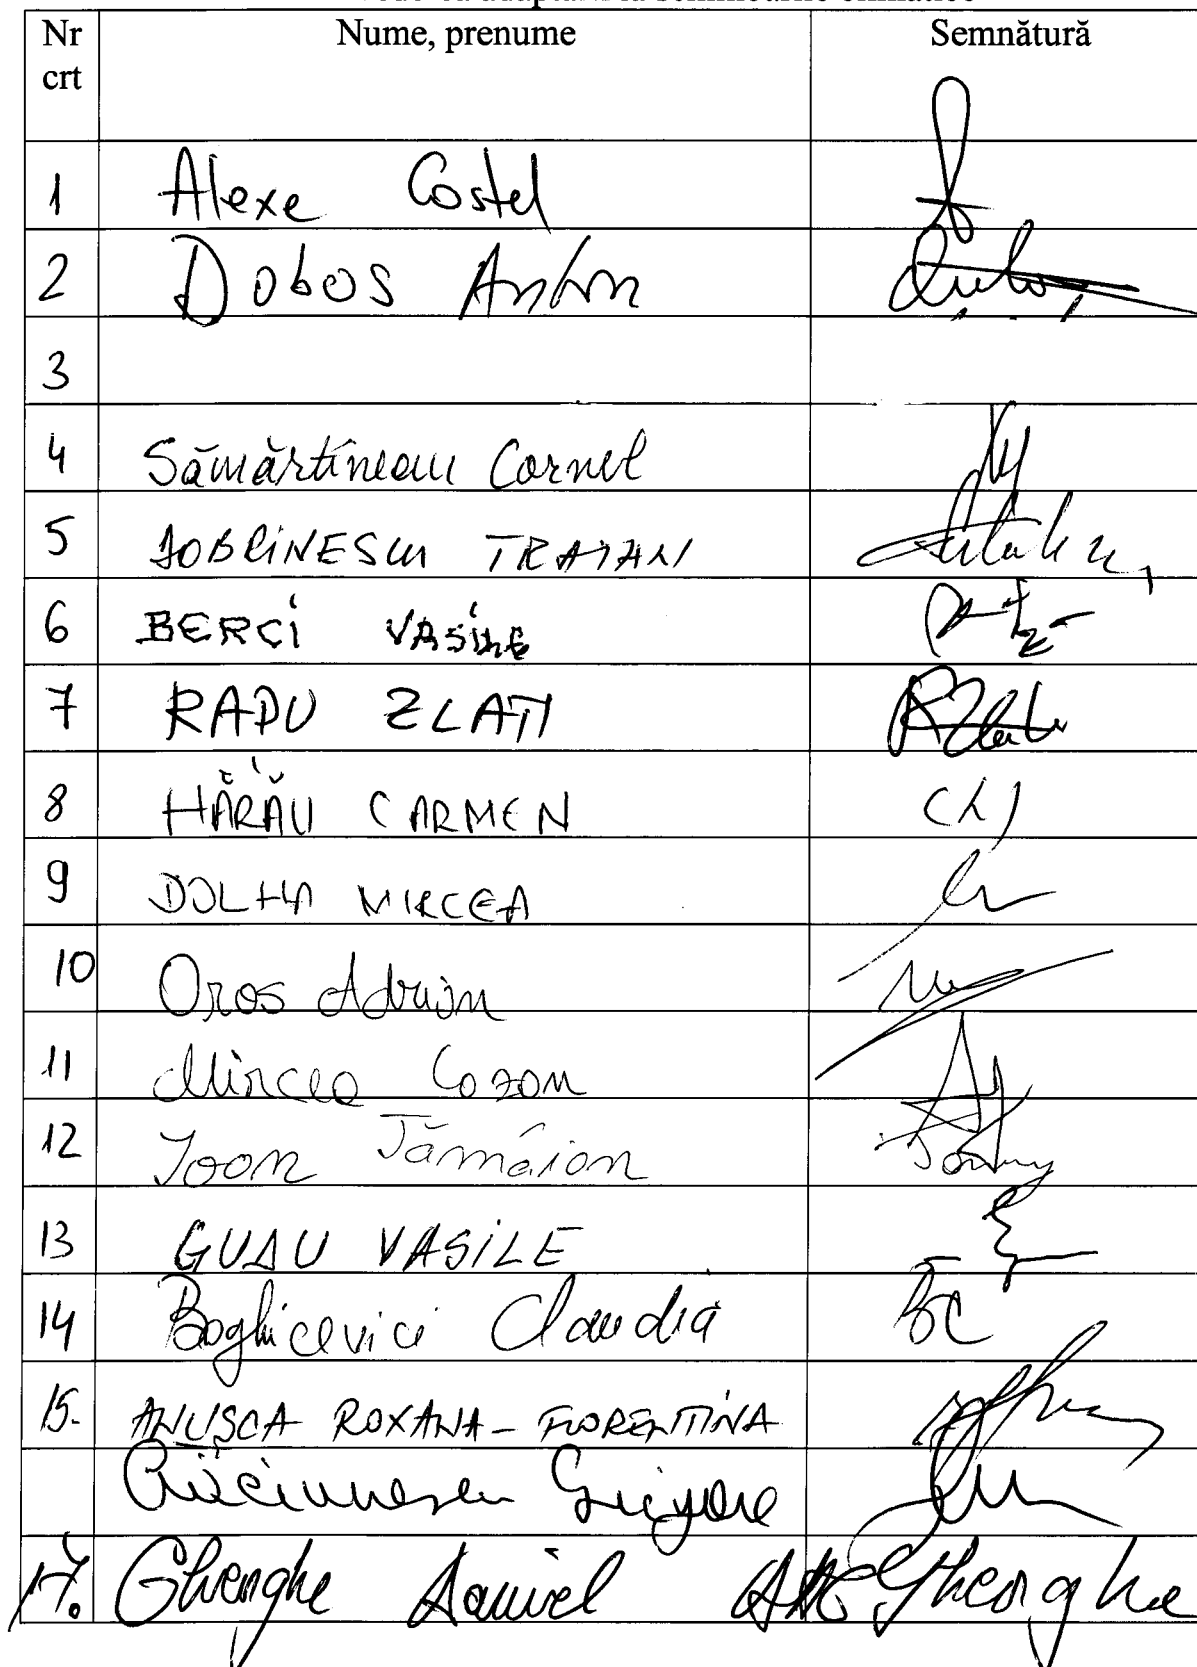 adaptarea la schimbările climatice
Nr crt Nume, prenume Semnătură
1 Alexe Costel
2 Dobos Anton
3
4 Sămărtinean Cornel
5 DOBRINESCU TRAIAN
6 BERCI VASILE
7 RADU ZLATI
8 HĂRĂU CARMEN
9 DOLHA MIRCEA
10 Oros Adrian
11 Mircea Cozan
12 Ioan Tămâian
13 GUDU VASILE
14 Boghicevici Claudia
15. ANUSCA ROXANA-FLORENTINA
Grigore
17. Gheorghe Daniel Gheorghe